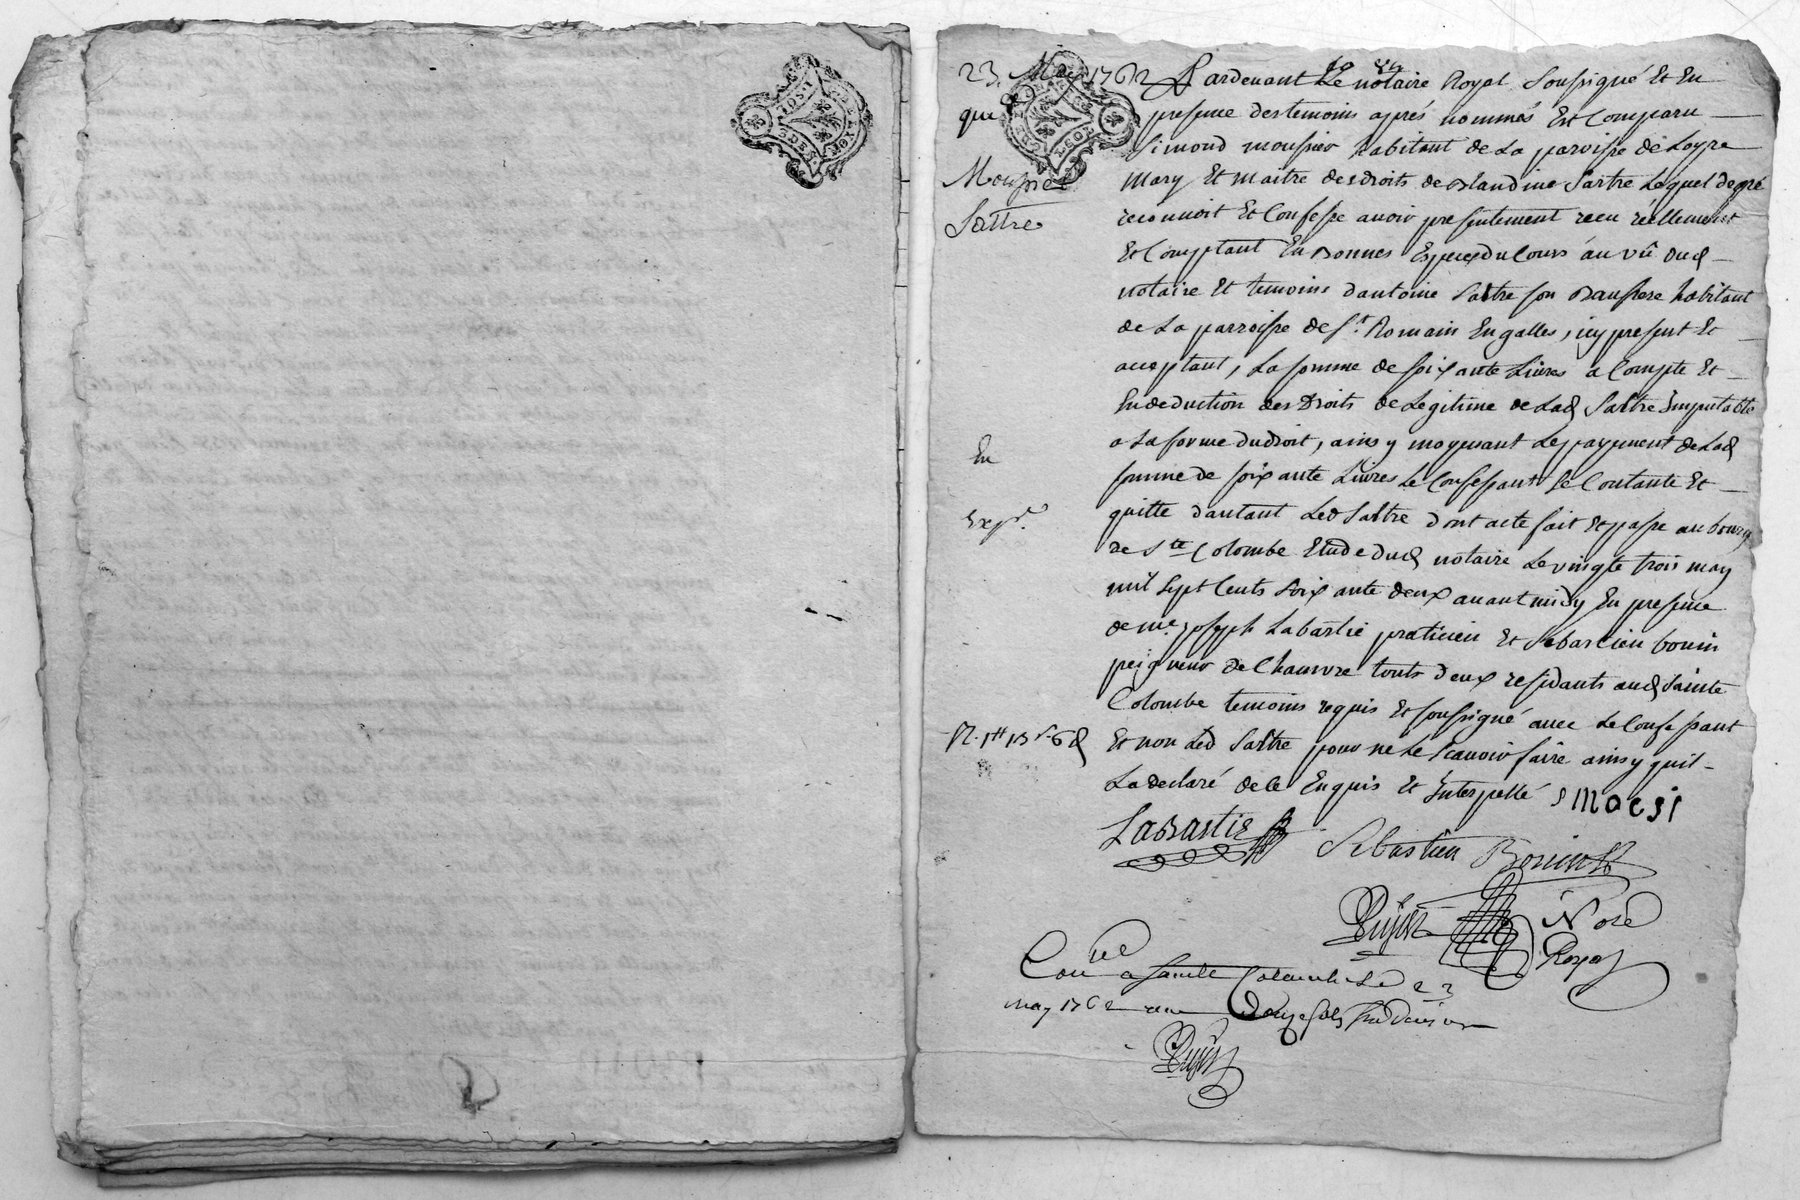 23. May 1762
quit
Mousnier
Sattre
Pardevant Le notaire Royal Soussigné Et En
presence des temoins aprés nommés Est Comparu
Simond mousnier habitant de La paroisse de Loyre
Mary Et maitre des droits de Blandine Sattre Lequel de gré
reconnoit Et Confesse avoir presentement receu réellement
Et Comptant En Bonnes Especes du Cours au vû dud
notaire Et temoins dantoine Sattre son Baufrere habitant
de La parroisse de St. Romain En galles, icy present Et
acceptant, La somme de soixante Livres a Compte Et
En deduction des Droits de Legitime de Lad Sattre Imputable
a La forme du droit, ainsy moyenant Le payement de Lad
En
somme de soixante Livres Le Confessant Se Contante Et
Expe.
quitte dautant Led Sattre dont acte fait Et passe au bourg
de Ste Colombe Etude dud notaire Le vingte trois may
mil sept Cents Soixante deux avant midy En presence
de me. Joseph Labastie praticien Et Sebastien bonin
peigneur de Chanvre touts deux residants aud Sainte
Colombe temoins requis Et soussigné avec Le Confessant
Et non Led Sattre pour ne Le Scavoir faire ainsy quil
La declaré de Ce Enquis Et Interpellé S MOESI
LaBastie
Sebastien Bonin
Nore
Royal
Conlle a Sainte Colombe Le 23
may 1762 Douze sols